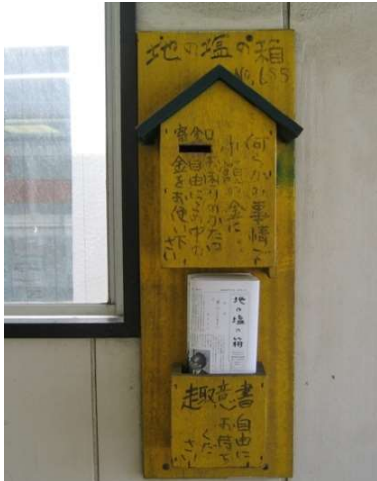 地の塩の箱
No.685
寄金口
何らかの事情で
小額の金に
お困りのかたは
自由にこの中の
金をお使い下
さい
地の塩の箱
趣意書
自由に
お持ち
くだ
さい